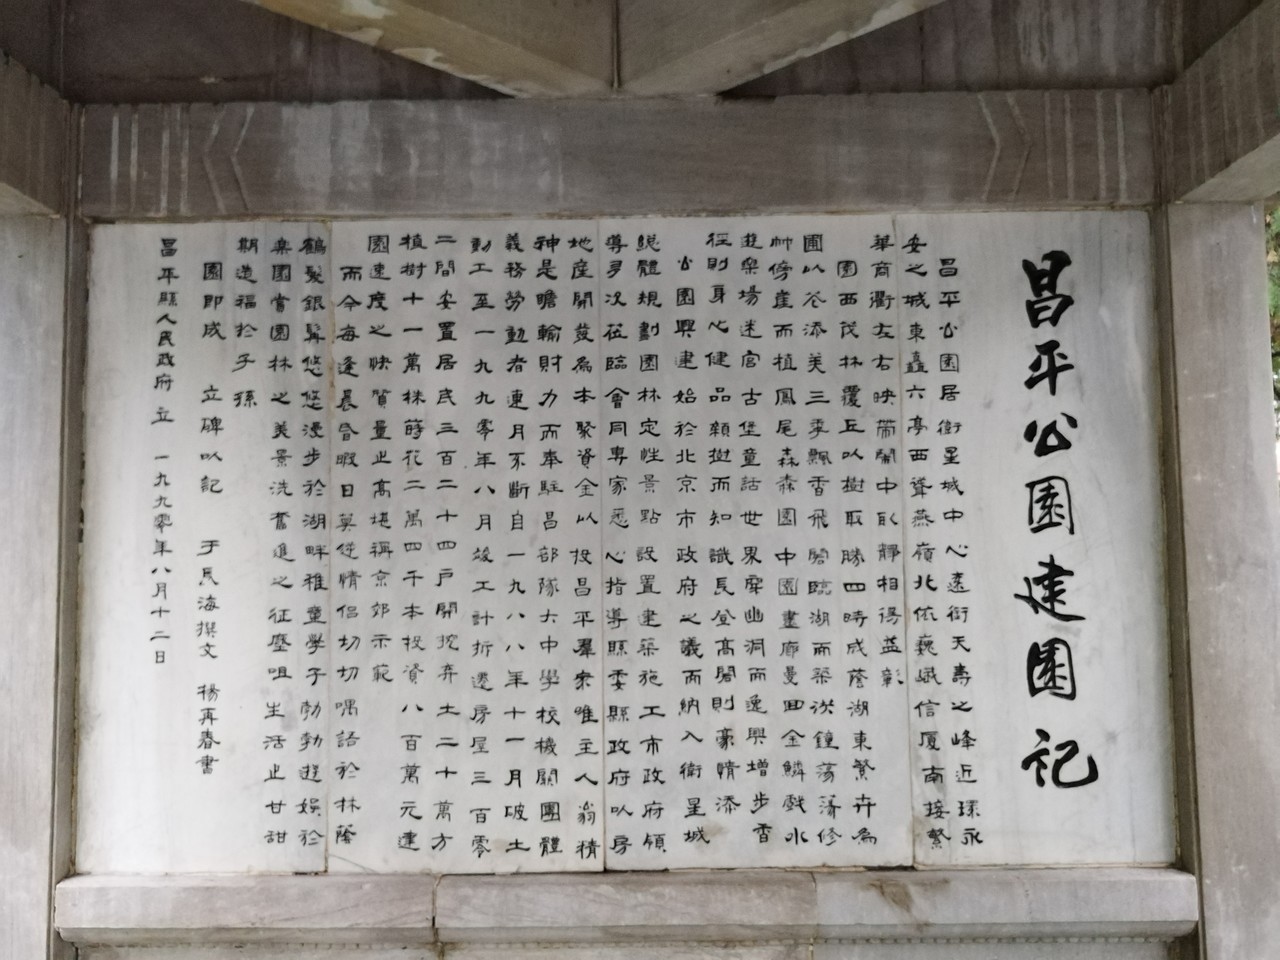 昌平公園建園記
昌平公園居衛星城中心遠銜天壽之峰近瑹永
安之城東矗六亭西聳燕嶺北依巍峨信厦南接繁
華商衢左右映帶鬧中取靜相得益彰
園西茂林覆丘以樹取勝四時成蔭湖東繁卉為
圃以花添美三季飄香飛閣臨湖而築洪鐘蕩蕩修
竹傍崖而植鳳尾森森園中園畫廊曼回金鱗戲水
遊樂場迷宮古堡童話世界犀幽洞而逸興增步香
徑則身心健品額樹而知識長登高閣則豪情添
公園興建始於北京市政府之議而納入衛星城
總體規劃園林定性景點設置建築施工市政府領
導多次蒞臨會同專家悉心指導縣委縣政府以房
地產開發為本聚資金以投昌平羣衆唯主人翁精
神是瞻輸財力而奉駐昌部隊大中學校機關團體
義務勞動者連月不斷自一九八八年十一月破土
動工至一九九零年八月竣工計折遷房屋三百零
二間安置居民三百二十四戶開挖弃土二十萬方
植樹十一萬株蒔花二萬四千本投資八百萬元建
園速度之快質量之高堪稱京郊示範
而今每逢晨昏暇日莫逆情侣切切喁語於林蔭
鶴髮銀髯悠悠漫步於湖畔稚童學子勃勃遊娱於
樂園賞園林之美景洗奮進之征塵咀生活之甘甜
期造福於子孫
園即成 立碑以記 于民海撰文 楊再春書
昌平縣人民政府 立 一九九零年八月十二日